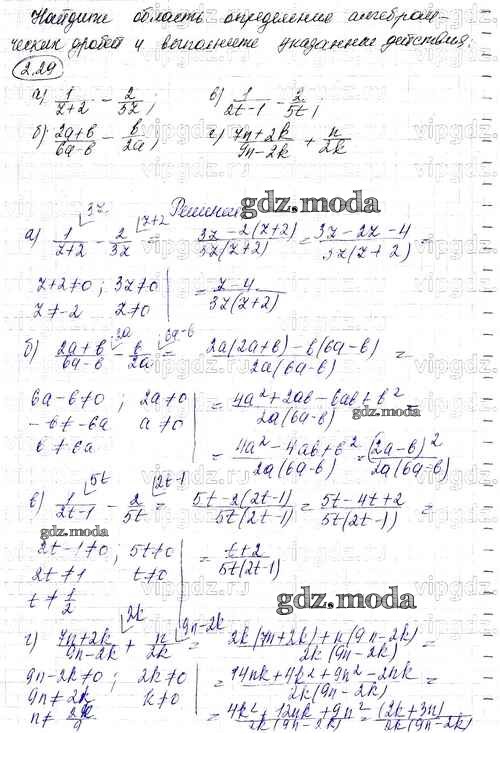 Найдите область определение алгебраи-
ческих дробей и выполните указанные действия:
2.29
а) 1/(z+2) - 2/(3z);  в) 1/(2t-1) - 2/(5t);
б) (2a+b)/(6a-b) - b/(2a);  г) (7n+2k)/(9n-2k) + n/(2k)
Решение
gdz.moda
а) 1/(z+2) - 2/(3z) = (3z-2(z+2))/(3z(z+2)) = (3z-2z-4)/(3z(z+2)) =
z+2≠0; 3z≠0 = (z-4)/(3z(z+2))
z≠-2 z≠0
б) (2a+b)/(6a-b) - b/(2a) = (2a(2a+b)-b(6a-b))/(2a(6a-b)) =
6a-b≠0; 2a≠0 = (4a²+2ab-6ab+b²)/(2a(6a-b)) =
-b≠-6a a≠0
b≠6a = (4a²-4ab+b²)/(2a(6a-b)) = (2a-b)²/(2a(6a-b))
в) 1/(2t-1) - 2/(5t) = (5t-2(2t-1))/(5t(2t-1)) = (5t-4t+2)/(5t(2t-1)) =
gdz.moda
2t-1≠0; 5t≠0 = (t+2)/(5t(2t-1))
2t≠1 t≠0
t≠1/2
gdz.moda
г) (7n+2k)/(9n-2k) + n/(2k) = (2k(7n+2k)+n(9n-2k))/(2k(9n-2k)) =
9n-2k≠0; 2k≠0 = (14nk+4k²+9n²-2nk)/(2k(9n-2k)) =
9n≠2k k≠0
n≠2k/9 = (4k²+12nk+9n²)/(2k(9n-2k)) = (2k+3n)/(2k(9n-2k))